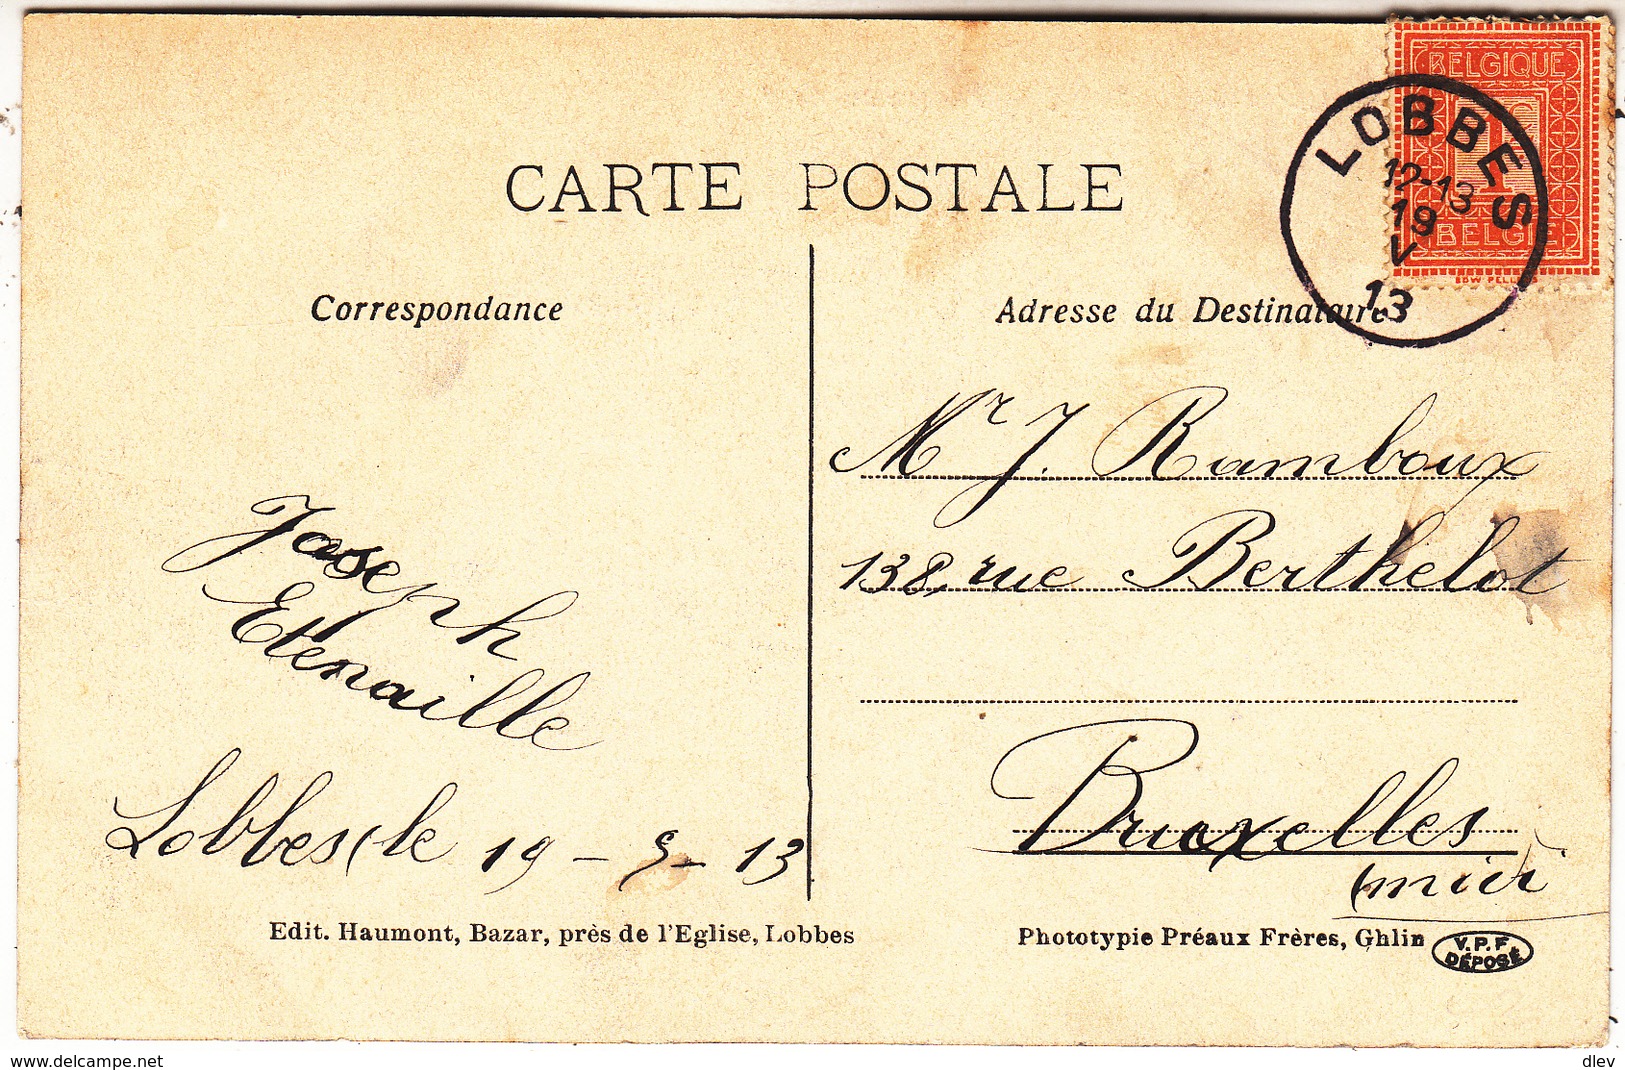 BELGIQUE
1c
BELGIE
LOBBES
12-13
19
V
13
CARTE POSTALE
Correspondance
Adresse du Destinataire
Mr J. Ramboux
138, rue Berthelot
Bruxelles
(midi
Joseph
Etenaille
Lobbes, le 19 - 5 - 13
Edit. Haumont, Bazar, près de l'Eglise, Lobbes
Phototypie Préaux Frères, Ghlin
V.P.F.
DÉPOSÉ
www.delcampe.net
dlev